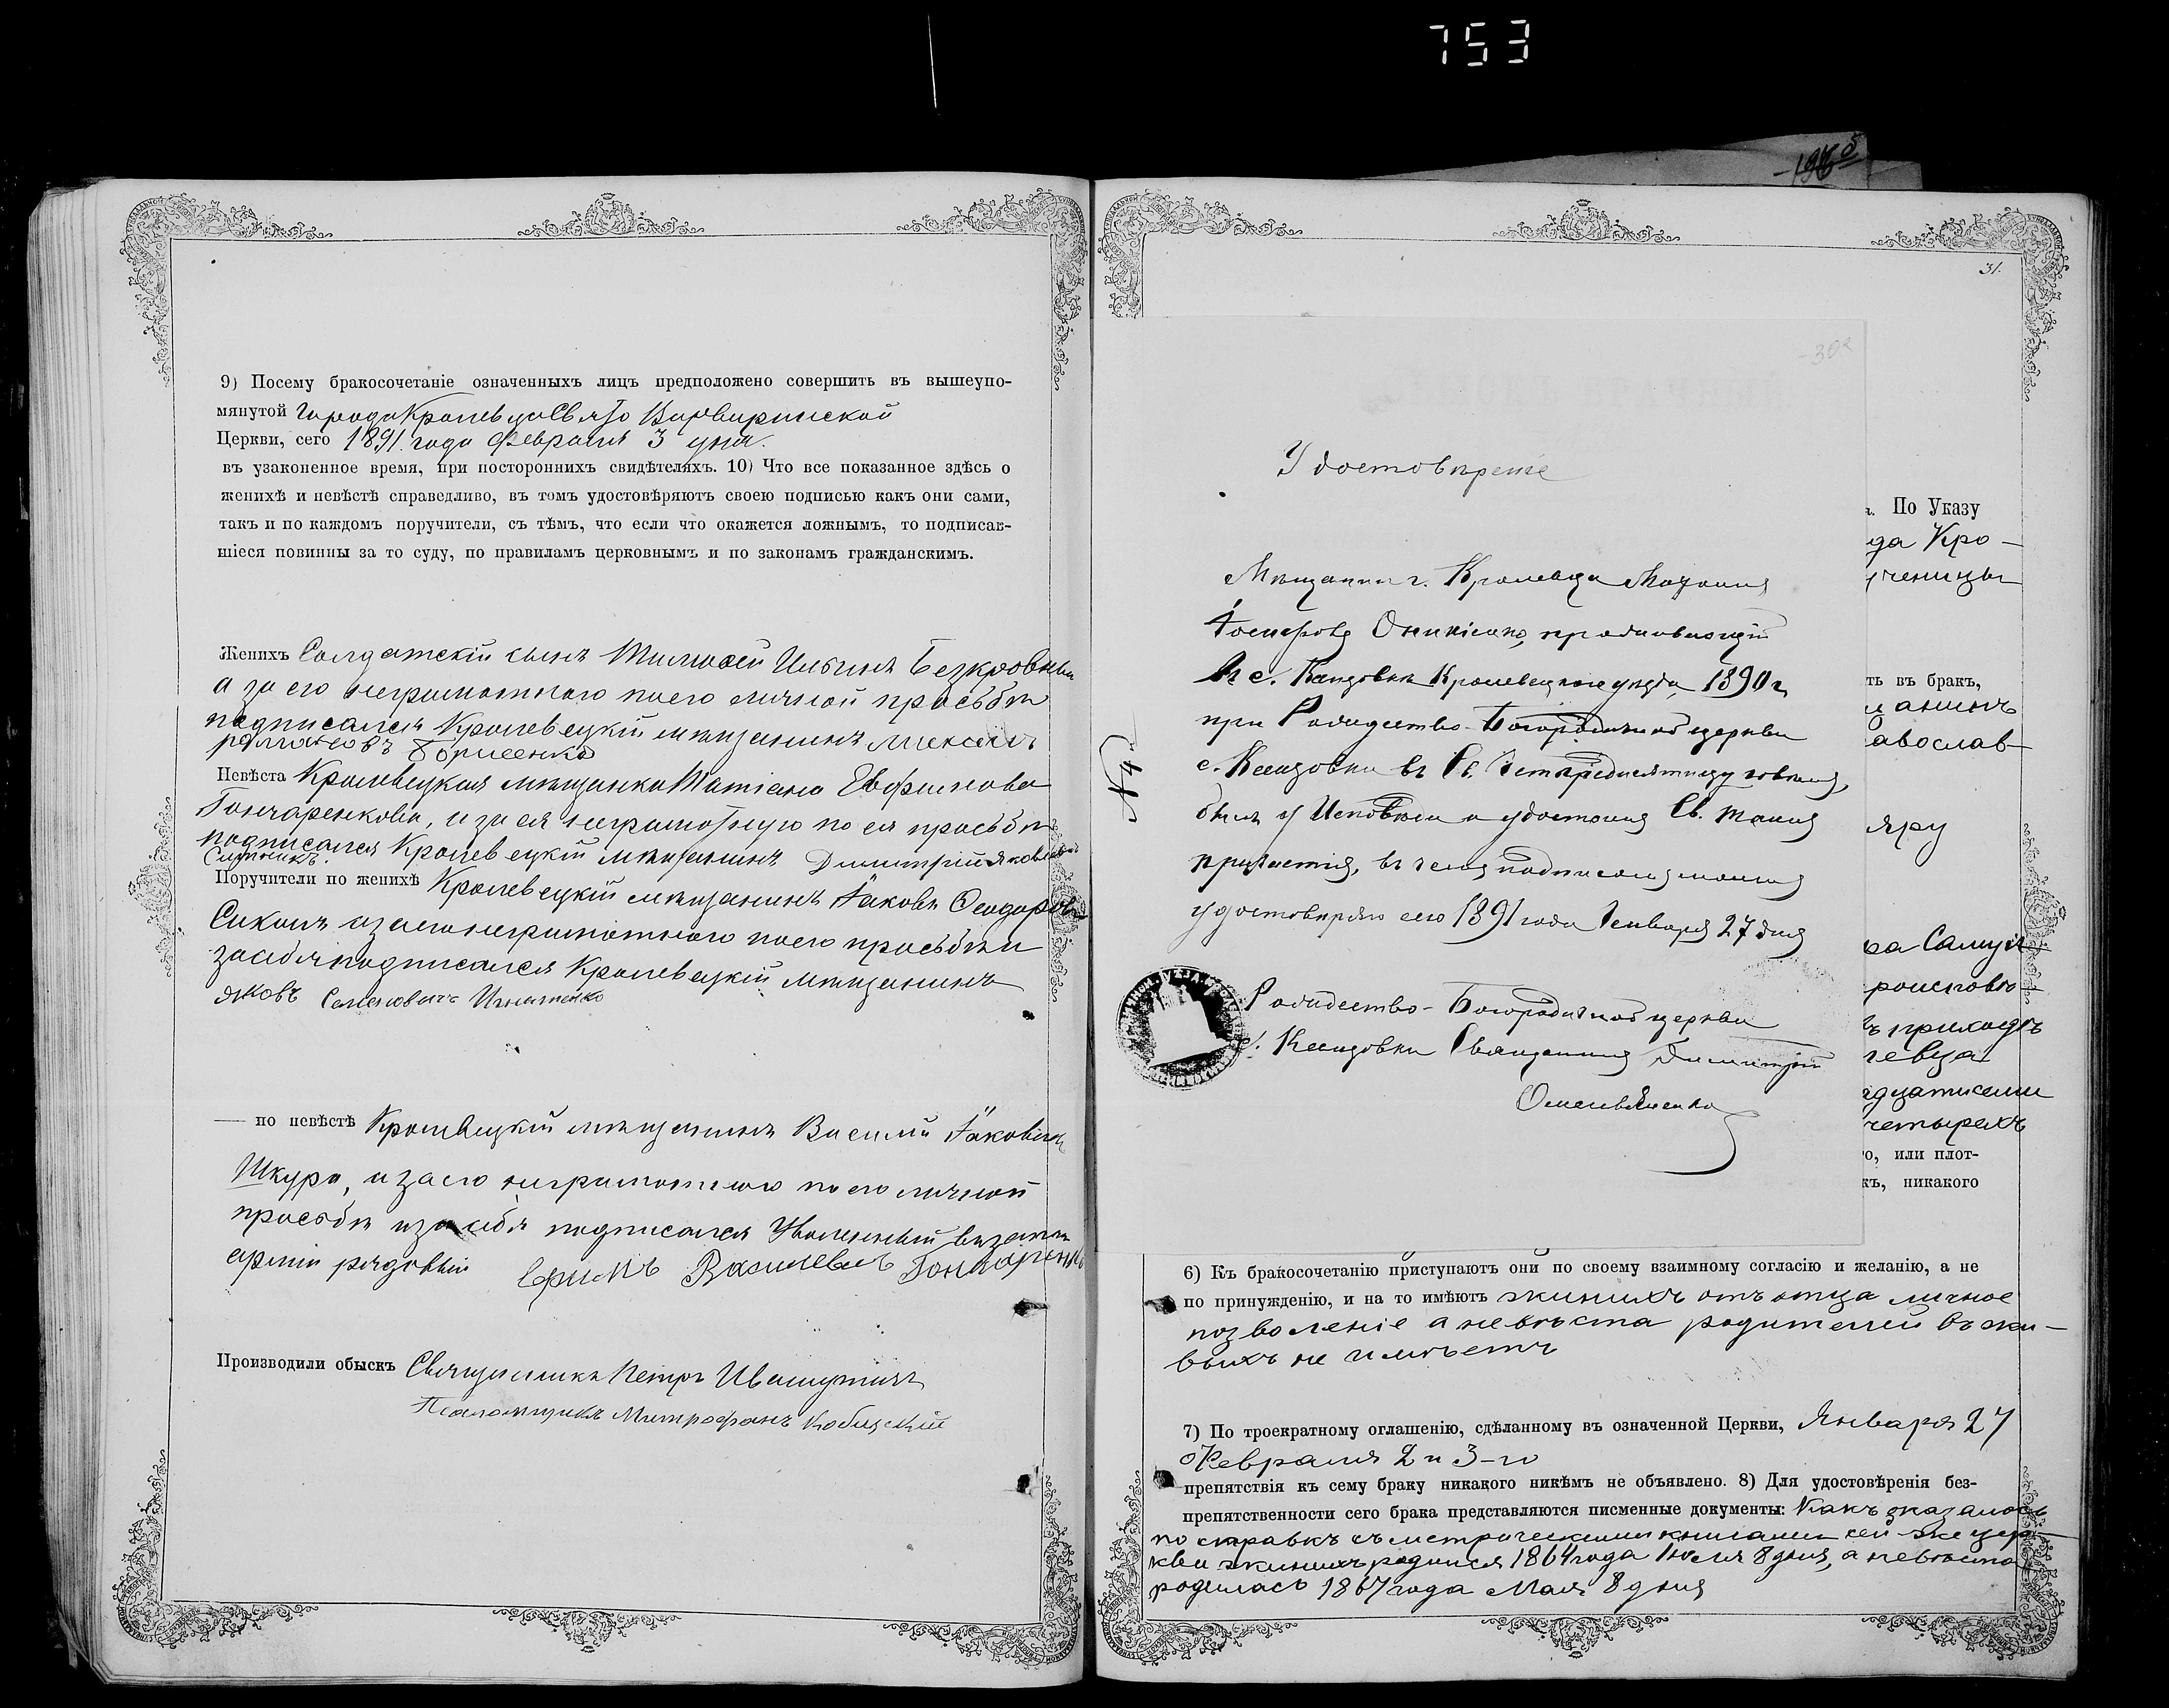 753
-1965
9) Посему бракосочетаніе означенныхъ лицъ предположено совершить въ вышеупо-
мянутой города Кролевца Свято Варваринской
Церкви, сего 1891 года Февраля 3 дня.
въ узаконенное время, при постороннихъ свидѣтеляхъ. 10) Что все показанное здѣсь о
женихѣ и невѣстѣ справедливо, въ томъ удостовѣряютъ своею подписью какъ они сами,
такъ и по каждомъ поручители, съ тѣмъ, что если что окажется ложнымъ, то подписав-
шіеся повинны за то суду, по правиламъ церковнымъ и по законамъ гражданскимъ.
Женихъ Солдатскій сынъ Тимофей Ильинъ Безкровный
а за его неграмотного по его личной просьбѣ
подписался Кролевецкій мѣщанинъ Алексѣй
Борисенко
Невѣста Кролевецкая мѣщанка Татіана Евфимова
Гончаренкова, и за ея неграмотную по ея просьбѣ
подписался Кролевецкій мѣщанинъ Димитрій Яковлевъ
Ситникъ.
Поручители по женихѣ Кролевецкій мѣщанинъ Іаковъ Ѳеодоровъ
а за его неграмотного по его просьбѣ и
за себя подписался Кролевецкій мѣщанинъ
Яковъ Семеновичъ Игнатенко
— по невѣстѣ Кролевецкій мѣщанинъ Василій Іаковлевъ
Шкура, и за его неграмотного по его личной
просьбѣ и за себя подписался Уволенный въ запас
арміи рядовый Ефимъ Василевичъ Гончаренко
Производили обыскъ Священникъ Петръ Ивашутичъ
Псаломщикъ Митрофанъ Кобицскій
31.
-30а
Удостовѣреніе
Мѣщанинъ г. Кролевца
Іосифовъ Оникіенко, проживающій
въ с. Кролевецкаго уѣзда, 1890 г,
при Рождество-Богородичной церкви
с. въ Св. Четыредесятницу говѣлъ,
былъ у Исповѣди и удостоенъ Св. Таинъ
причастія, въ чемъ подписомъ моимъ
удостовѣряю сего 1891 года Января 27 дня
№ 4
Рождество-Богородичной церкви
с. Священникъ Димитрій
Омельяненко
. По Указу
да Кро-
ученицы
ть въ бракъ,
щанинъ
авослав-
яру
ра Самуи
роисповѣ-
ъ приходѣ
левца
адцатисеми
четырехъ
о, или плот-
къ, никакого
6) Къ бракосочетанію приступаютъ они по своему взаимному согласію и желанію, а не
по принужденію, и на то имѣютъ женихъ отъ отца личное
позволеніе а невѣста родителей въ жи-
выхъ не имѣетъ
7) По троекратному оглашенію, сдѣланному въ означенной Церкви, Января 27
Февраля 2 и 3-го
препятствія къ сему браку никакого никѣмъ не объявлено. 8) Для удостовѣренія без-
препятственности сего брака представляются писменные документы: Какъ оказалось
по справкѣ съ метрическими книгами сей же цер-
кви женихъ родился 1864 года Іюля 8 дня, а невѣста
родилась 1867 года Мая 8 дня